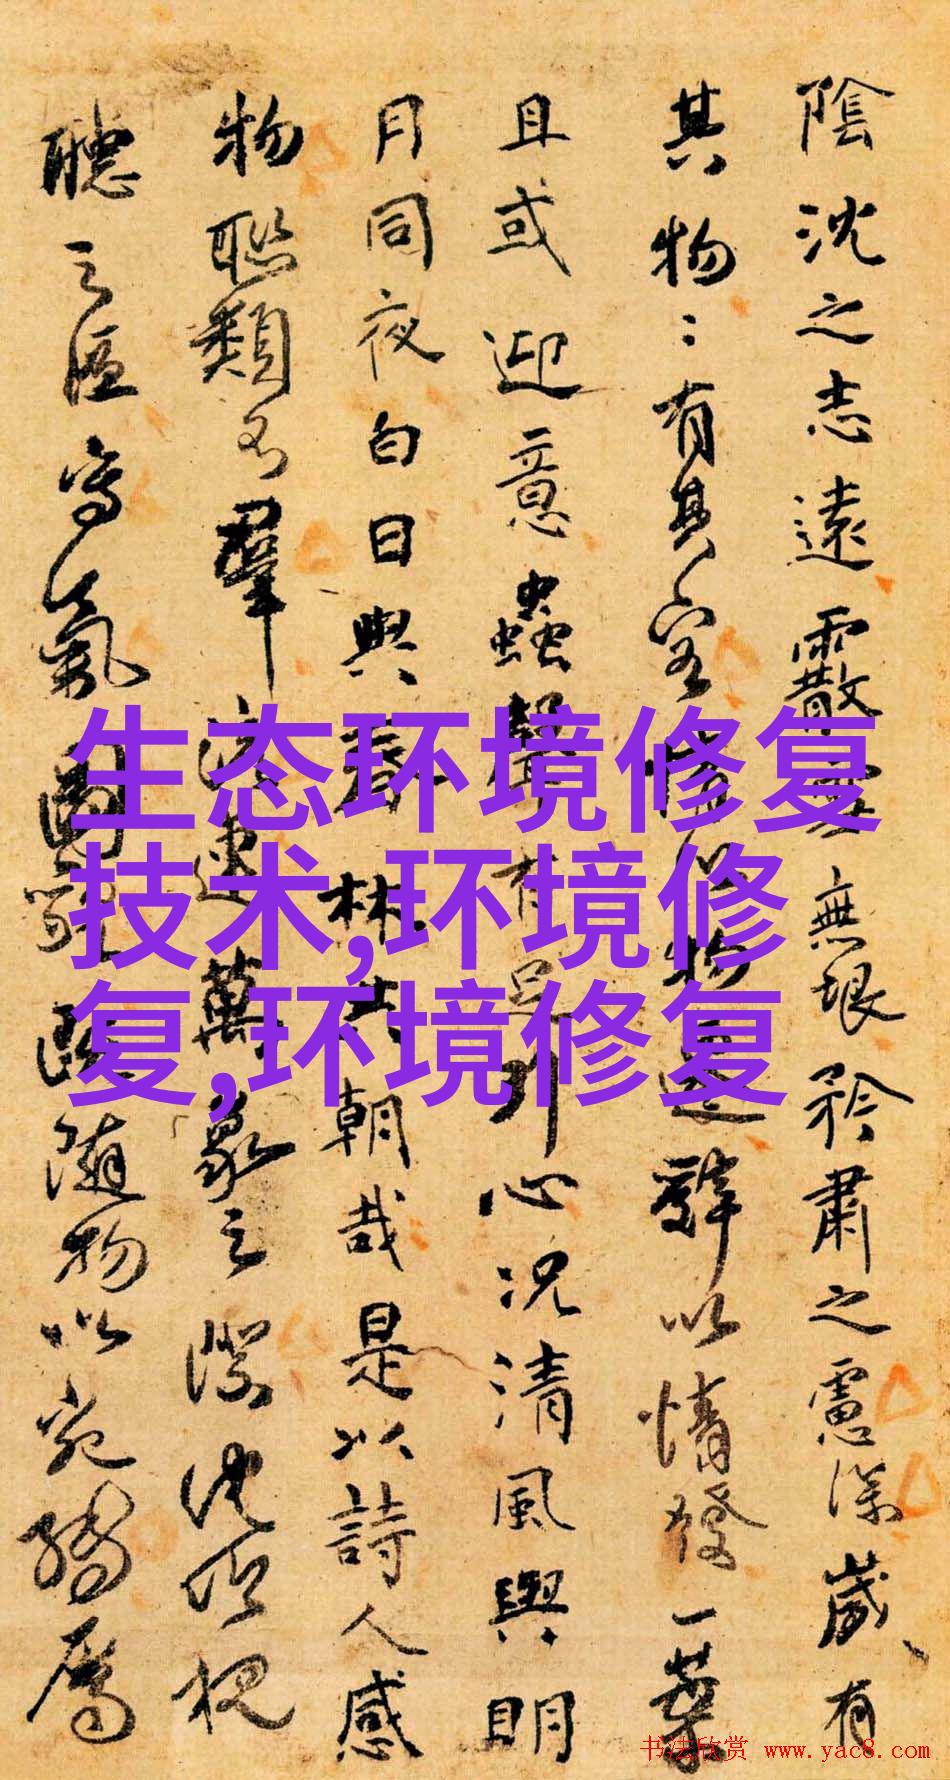 陰沈之志遠霰雪無垠矜肅之慮深歲有
其物〻有其容情以物遷辭以情發一葉
且或迎意蟲聲有足引心況清風與明
月同夜白日與春林共朝哉是以詩人感
物聯類不流連萬象之際沈吟視
聽之區寫氣圖隨物以宛轉屬
生态环境修复
技术,环境修
复,环境修复
书法欣赏 www.yac8.com